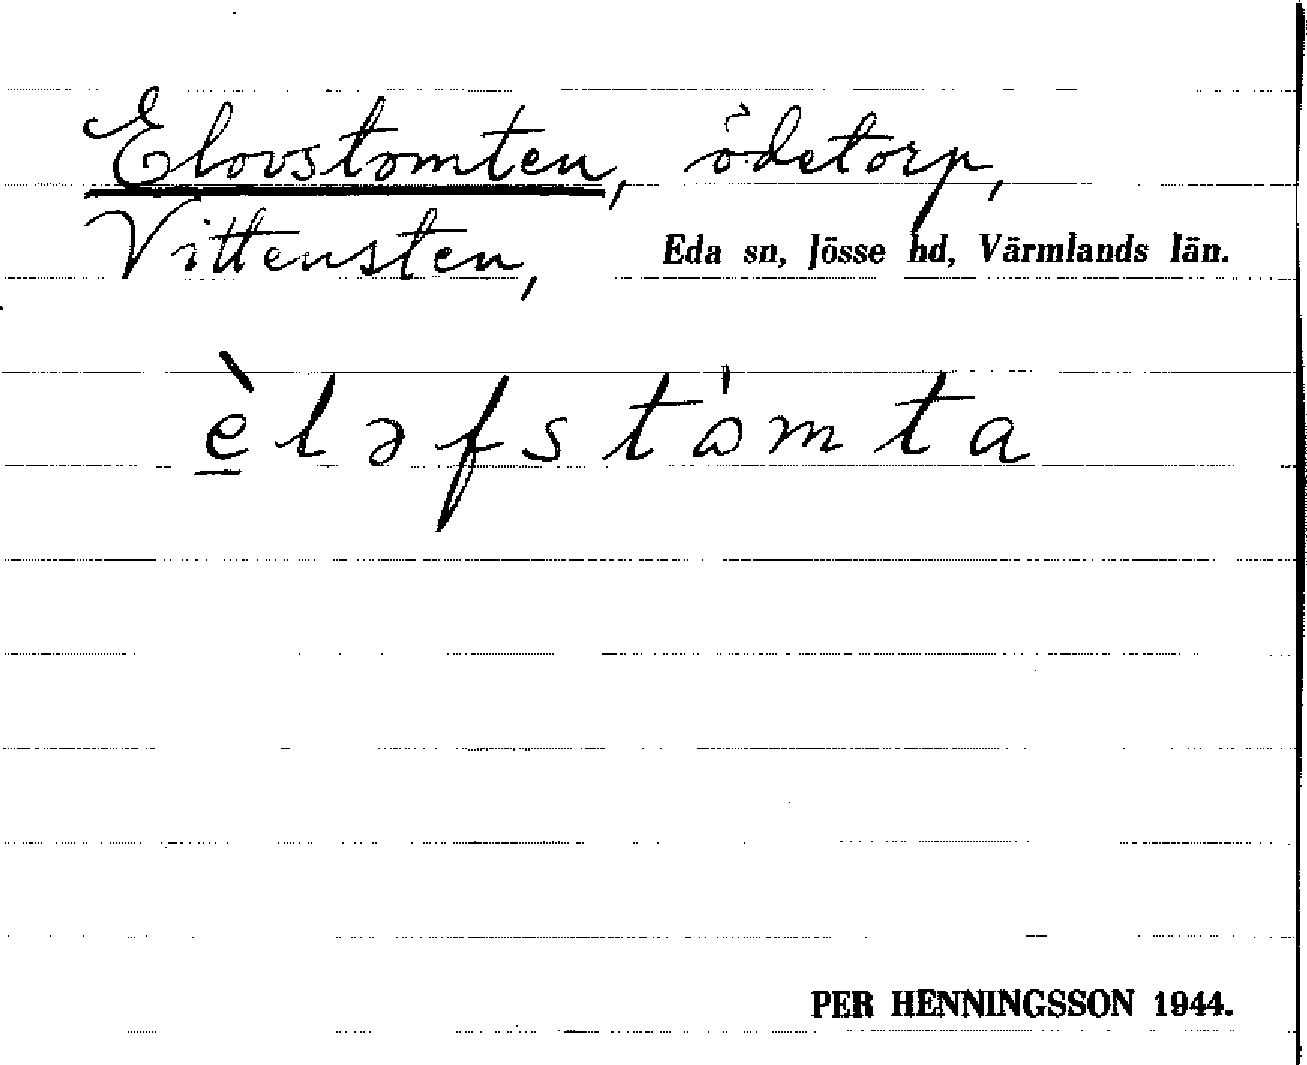 Elovstomten, ödetorp,
Vittensten, Eda sn, Jösse hd, Värmlands län.
è̲ləfstòmta
PER HENNINGSSON 1944.